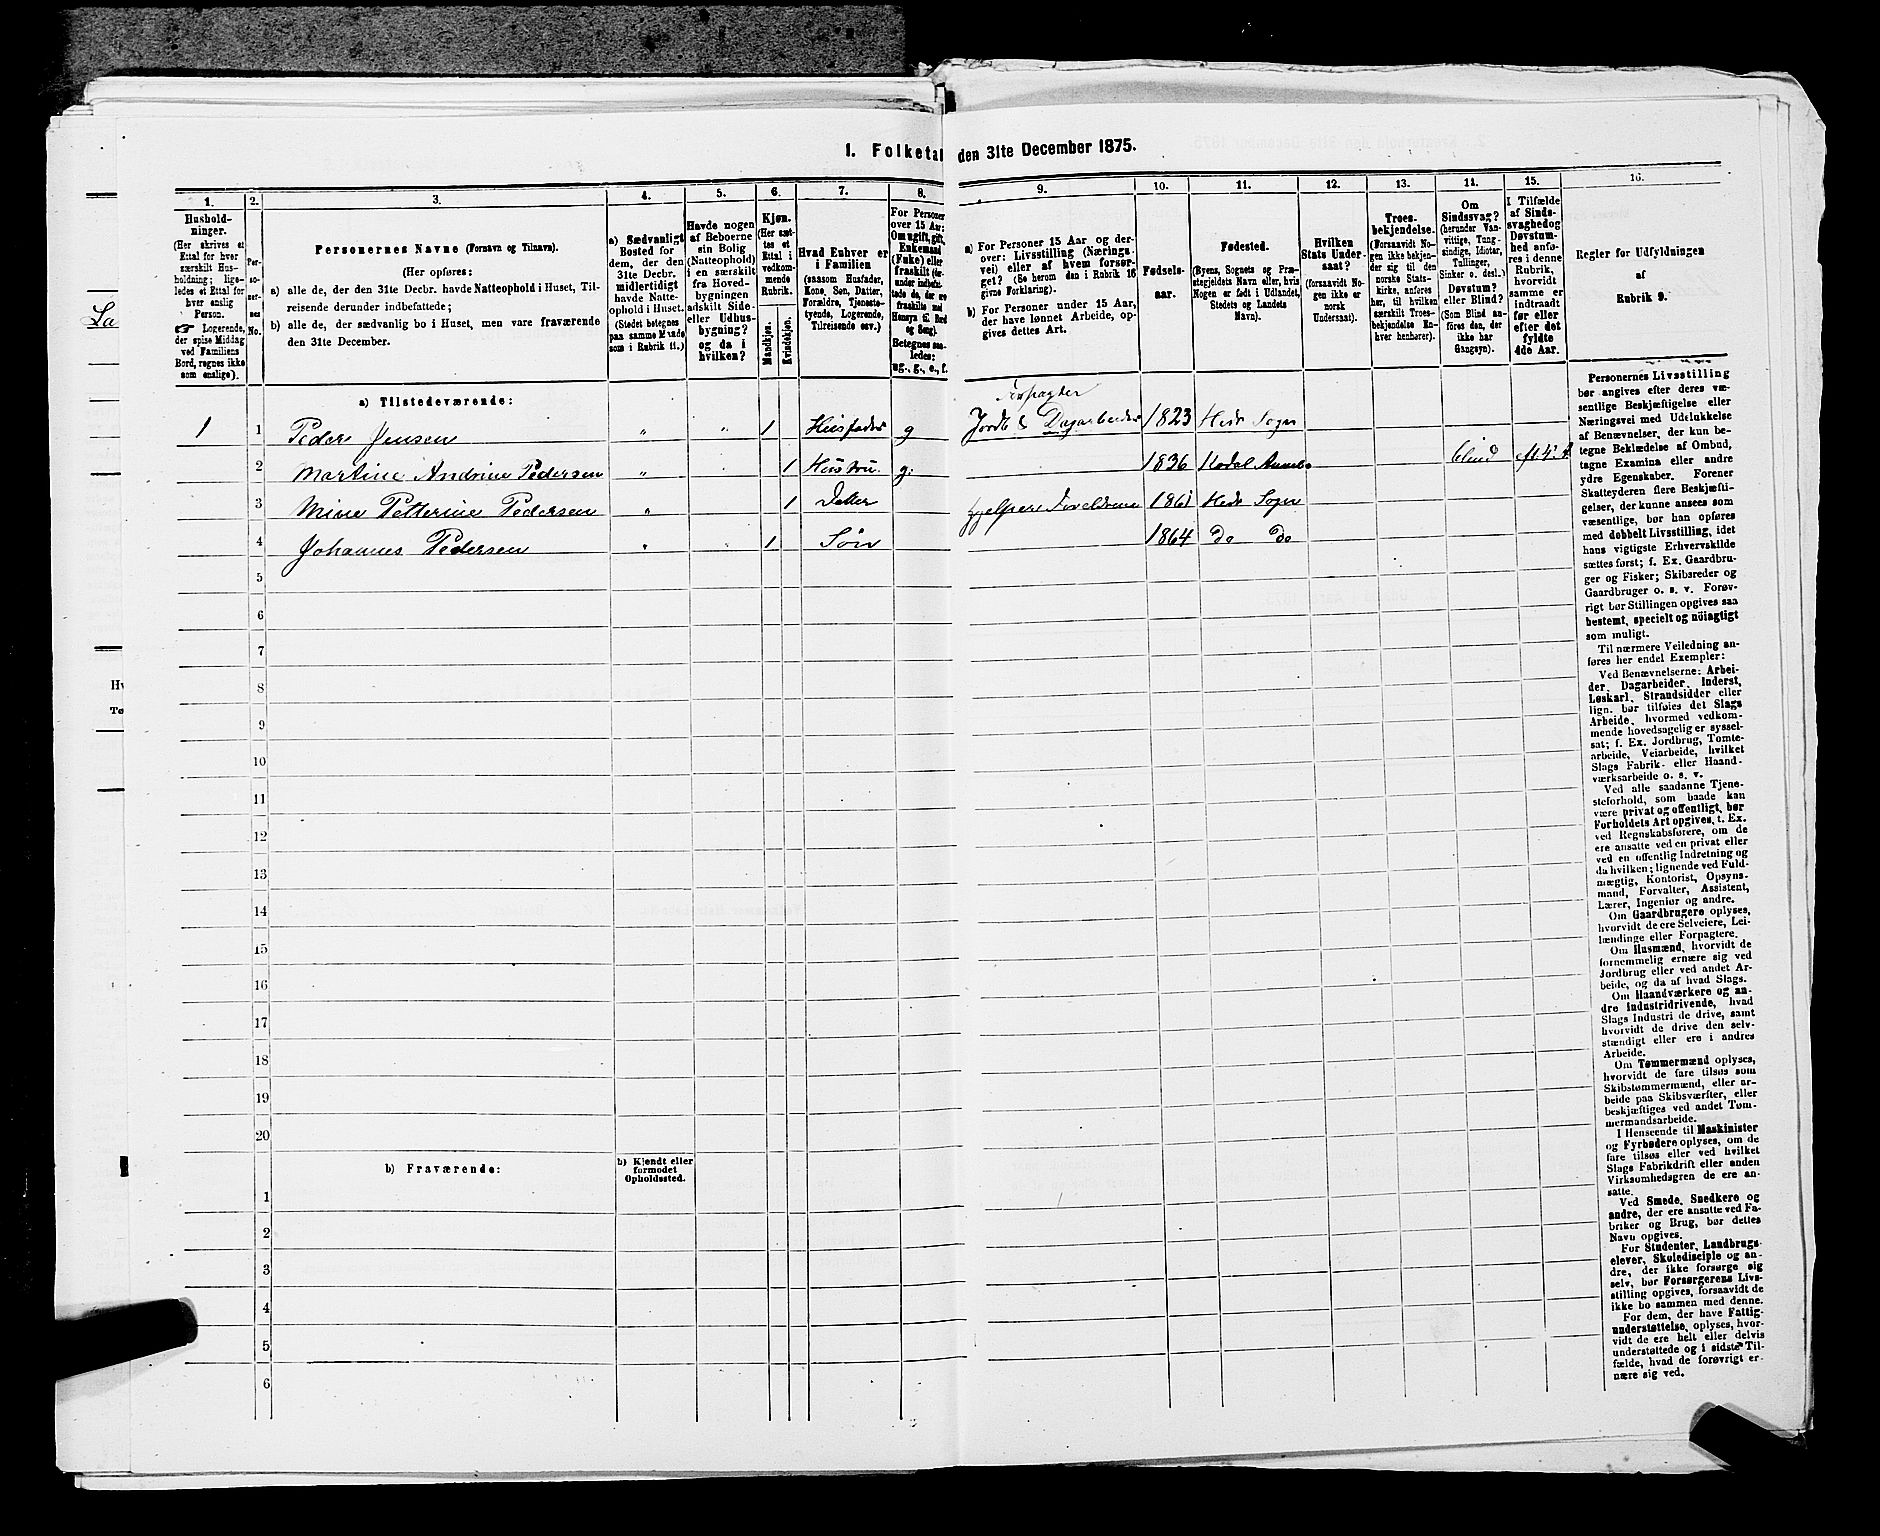 1. Folketal den 31te December 1875.
1. 2. 3. 4. 5. 6. 7. 8. 9. 10. 11. 12. 13. 14. 15. 16.
Hushold-
ninger.
(Her skrives et
Ettal for hver
særskilt Hus-
holdning; lige-
ledes et Ettal for
hver enslig
Person.
Logerende,
der spise Middag
ved Familiens
Bord, regnes ikke
som enslige).
Per-
so-
ner-
nes
No.
Personernes Navne (Fornavn og Tilnavn).
(Her opføres:
a) alle de, der den 31te Decbr. havde Natteophold i Huset, Til-
reisende derunder indbefattede;
b) alle de, der sædvanlig bo i Huset, men vare fraværende
den 31te December.
a) Sædvanligt
Bosted for
dem, der den
31te Decbr.
midlertidigt
havde Natte-
ophold i Huset.
(Stedet betegnes
paa samme Maade
som i Rubrik 11.)
Havde nogen
af Beboerne
sin Bolig
(Natteophold)
i en særskilt
fra Hoved-
bygningen
adskilt Side-
eller Udhus-
bygning?
og da i
hvilken?
Kjøn.
(Her sæt-
tes et
Ettal i
vedkom-
mende
Rubrik.
Mandkjøn.
Kvindekjøn.
Hvad Enhver er
i Familien
(saasom Husfader,
Kone, Søn, Datter,
Forældre, Tjeneste-
tyende, Logerende,
Tilreisende osv.)
For Personer
over 15 Aar:
Om ugift, gift,
Enkemand
(Enke) eller
fraskilt
Betegnes saa-
ledes:
ug., g., e., f.
a) For Personer 15 Aar og der-
over: Livsstilling (Nærings-
vei) eller af hvem forsør-
get? (Se herom den i Rubrik 16
givne Forklaring).
b) For Personer under 15 Aar,
der have lønnet Arbeide, op-
gives dettes Art.
Fødsels-
aar.
Fødested.
(Byens, Sognets og Præ-
stegjeldets Navn eller, hvis
Nogen er født i Udlandet,
Stedets og Landets
Navn).
Hvilken
Stats Under-
saat?
(forsaavidt No-
gen ikke er
norsk
Undersaat).
Troes-
bekjendelse.
(Forsaavidt No-
gen ikke bekjen-
der sig til den
norske Stats-
kirke, anføres
her, til hvilken
særskilt Troes-
bekjendelse En-
hver henhører).
Om
Sindssvag?
(herunder Van-
vittige, Tung-
sindige, Idioter,
Tullinger,
Sinker o. desl.)
Døvstum?
eller Blind?
(Som Blind an-
føres den, der
ikke har
Gangsyn).
I Tilfælde
af Sinds-
svaghed og
Døvstum-
hed anfø-
res i denne
Rubrik,
hvorvidt
samme er
indtraadt
før eller
efter det
fyldte
4de Aar.
Regler for Udfyldningen
af
Rubrik 9.
a) Tilstedeværende:
Forpagter
1 1 Peder Jensen „ „ 1 Husfader g Jordb & Dagarbeider 1823 Hedr Sogn
2 Martine Andrine Pedersen „ 1 Hustru g: 1836 Kodal blind
3 Mine Petterine Pedersen „ 1 Datter Hjelper Foreldrene 1861 Hedr Sogn
4 Johannes Pedersen „ „ 1 Søn 1864 Do Do
5
6
7
8
9
10
11
12
13
14
15
16
17
18
19
20
b) Fraværende:
b) Kjendt eller
formodet
Opholdssted.
1
2
3
4
5
6
Personernes Livsstilling
bør angives efter deres væ-
sentlige Beskjæftigelse eller
Næringsvei med Udelukkelse
af Benævnelser, der kun be-
tegne Beklædelse af Ombud,
tagne Examina eller andre
ydre Egenskaber. Forener
Skatteyderen flere Beskjæfti-
gelser, der kunne ansees som
væsentlige, bør han opføres
med dobbelt Livsstilling, idet
hans vigtigste Erhvervskilde
sættes først; f. Ex. Gaardbru-
ger og Fisker; Skibsreder og
Gaardbruger o. s. v. Forøv-
rigt bør Stillingen opgives saa
bestemt, specielt og nöiagtigt
som muligt.
Til nærmere Veiledning an-
føres her endel Exempler:
Ved Benævnelserne: Arbei-
der, Dagarbeider, Inderst,
Løskarl, Strandsidder eller
lign. bør tilføies det Slags
Arbeide, hvormed vedkom-
mende hovedsagelig er syssel-
sat; f. Ex. Jordbrug, Tomte-
arbeide, Veiarbeide, hvilket
Slags Fabrik- eller Haand-
værksarbeide o. s. v.
Ved alle saadanne Tjene-
steforhold, som baade kan
være privat og offentligt, bør
Forholdets Art opgives, t. Ex.
ved Regnskabsførere, om de
ere ansatte ved en privat eller
ved en offentlig Indretning og
da hvilken; lignende ved Fuld-
mægtig, Kontorist, Opsyns-
mand, Forvalter, Assistent,
Lærer, Ingeniør og andre.
Om Gaardbrugere oplyses,
hvorvidt de ere Selveiere, Lei-
lændinge eller Forpagtere.
Om Husmænd, hvorvidt de
fornemmelig ernære sig ved
Jordbrug eller ved andet Ar-
beide, og da af hvad Slags.
Om Haandværkere og an-
dre Industridrivende, hvad
Slags Industri de drive, samt
hvorvidt de drive den selv-
stændigt eller ere i andres
Arbeide.
Om Tømmermænd oplyses,
hvorvidt de fare tilsøs som
Skibstømmermænd, eller ar-
beide paa Skibsværfter, eller
beskjæftiges ved andet Tøm-
mermandsarbeide.
I Henseende til Maskinister
og Fyrbødere oplyses, om de
fare tilsøs eller ved hvilket
Slags Fabrikdrift eller anden
Virksomhedsgren de ere an-
satte.
Ved Smede, Snedkere og
andre, der ere ansatte ved Fa-
briker og Brug, bør dettes
Navn opgives.
For Studenter, Landbrugs-
elever, Skoledisciple og an-
dre, der ikke forsørge sig
selv, bør Forsørgerens Livs-
stilling opgives, forsaavidt de
ikke bo sammen med denne.
For dem, der have Fattig-
understøttelse, oplyses, hvor-
vidt de ere helt eller delvis
understøttede og i sidste Til-
fælde, hvad de forøvrigt er-
nære sig ved.